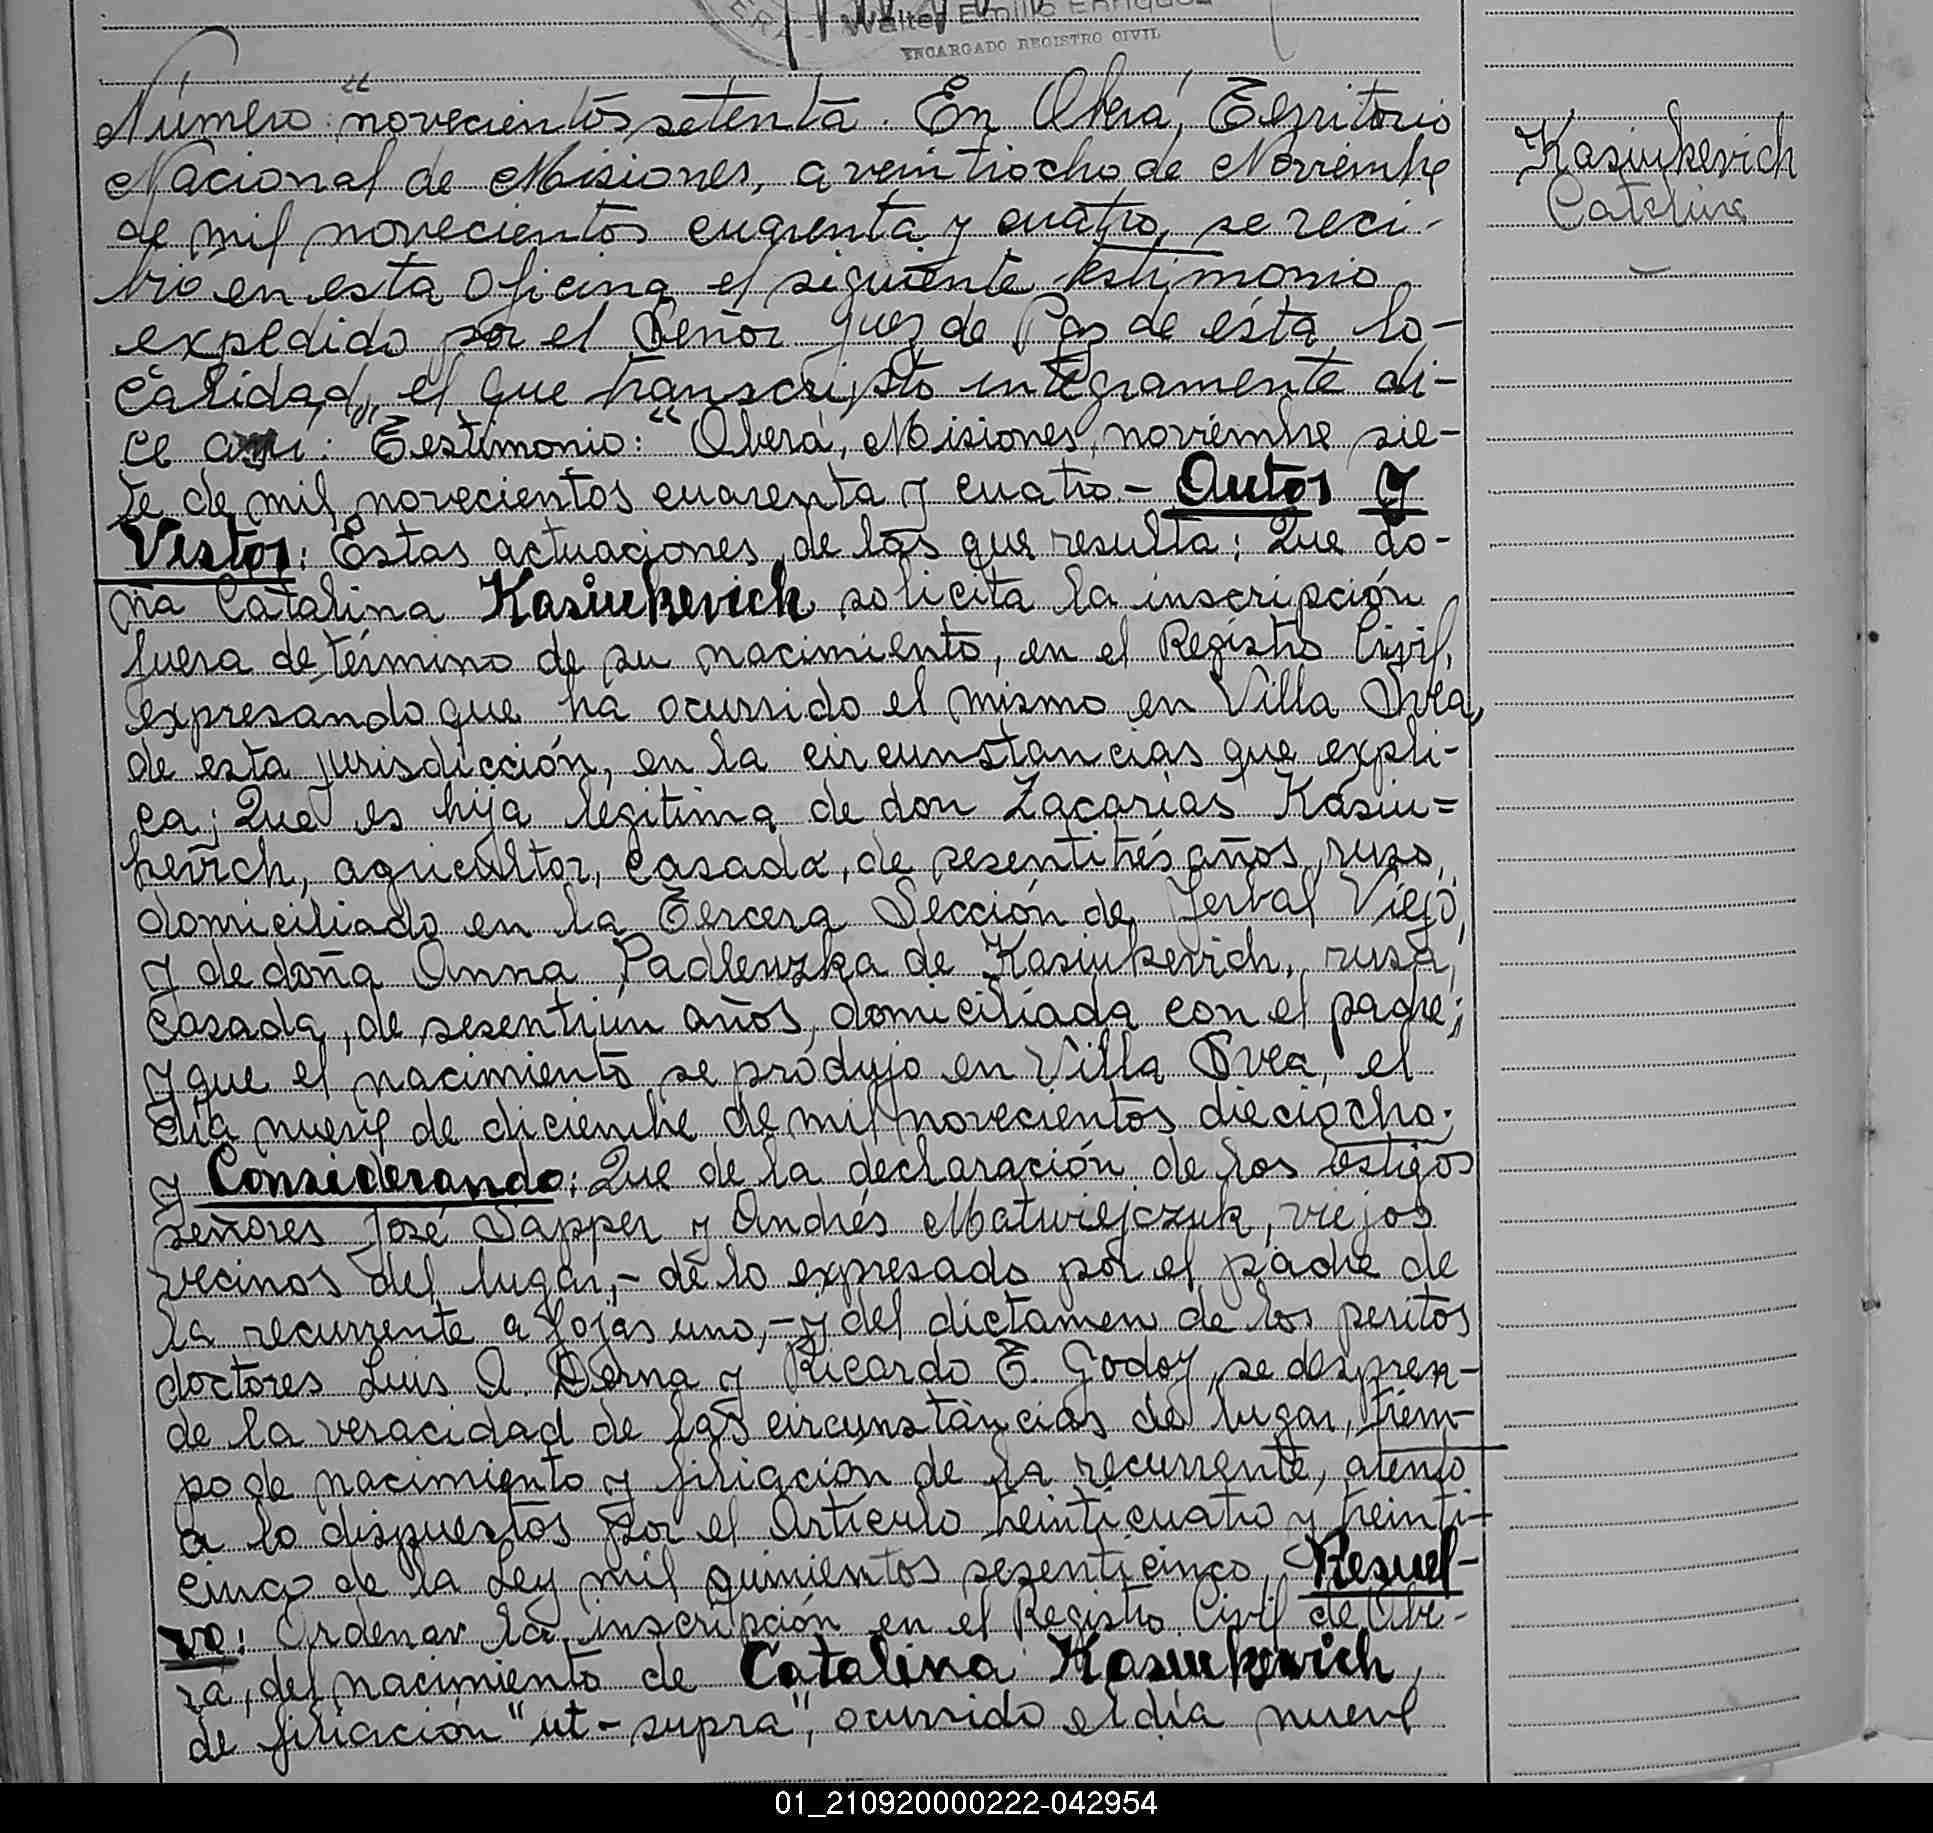 Walter Emilio Enriquez
ENCARGADO REGISTRO CIVIL
Número: "novecientos setenta. En Oberá, Territorio
Nacional de Misiones, a veintiocho de Noviembre
de mil novecientos cuarenta y cuatro, se reci-
bio en esta Oficina el siguiente testimonio
expedido por el Señor Juez de Paz de ésta lo-
calidad, el que transcripto integramente di-
ce así: "Testimonio: "Oberá, Misiones, noviembre sie-
te de mil novecientos cuarenta y cuatro - Autos y
Vistos: Estas actuaciones, de las que resulta: Que do-
ña Catalina Kasiukevich solicita la inscripción
fuera de término de su nacimiento, en el Registro Civil,
expresando que ha ocurrido el mismo en Villa Svea,
de esta jurisdicción, en la circunstancias que expli-
ca; Que es hija légitima de don Zacarías Kasiu=
kevich, agricultor, casado, de sesentitrés años, ruso,
domiciliado en la Tercera Sección de Yerbal Viejo,
y de doña Anna Padleuzka de Kasiukevich, rusa,
casada, de sesentiún años, domiciliada con el padre;
y que el nacimiento se produjo en Villa Svea, el
día nueve de diciembre de mil novecientos dieciocho;
y Considerando: Que de la declaración de los testigos
señores José Sapper y Andrés Matwiejczuk, viejos
vecinos del lugar,- de lo expresado por el padre de
la recurrente a fojas uno,- y del dictamen de los peritos
doctores Luis A. Derna y Ricardo E. Godoy, se despren-
de la veracidad de las circunstancias de lugar, tiem-
po de nacimiento y filiación de la recurrente, atento
a lo dispuestos por el Artículo treinticuatro y treinti-
cinco de la Ley mil quinientos sesenticinco, Resuel-
vo: Ordenar la inscripción en el Registro Civil de Obe-
rá, del nacimiento de Catalina Kasiukevich,
de filiación "ut-supra", ocurrido el día nueve
Kasiukevich
Catalina
01_210920000222-042954